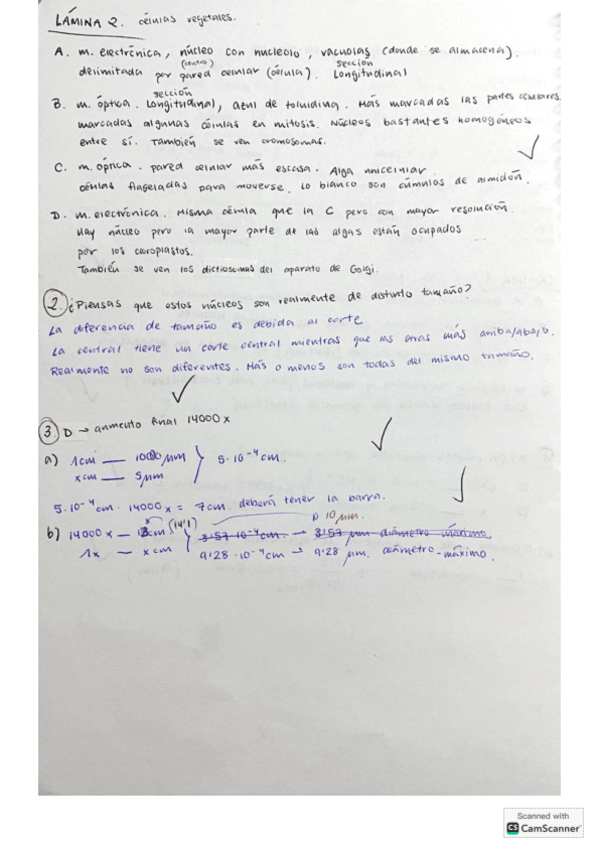 LÁMINA 2. células vegetales.
A. m. electrónica, núcleo con nucleolo, vacuolas (donde se almacena).
delimitada por pared celular (célula). sección Longitudinal
(centro)
B. m. óptica. sección Longitudinal, azul de toluidina. Más marcadas las partes celulares
marcadas algunas células en mitosis. Núcleos bastantes homogéneos
entre sí. También se ven cromosomas.
C. m. óptica. pared celular más escasa. Alga unicelular
células flageladas para moverse. Lo blanco son cúmulos de almidón.
D. m. electrónica. Misma célula que la C pero con mayor resolución
Hay núcleo pero la mayor parte de las algas están ocupados
por los cloroplastos.
También se ven los dictiosomas del aparato de Golgi.
2. ¿Piensas que estos núcleos son realmente de distinto tamaño?
La diferencia de tamaño es debida al corte
La central tiene un corte central mientras que las otras más arriba/abajo.
Realmente no son diferentes. Más o menos son todas del mismo tamaño.
3. D → aumento final 14000x
a) 1cm — 10000 μm } 5·10⁻⁴ cm.
x cm — 5μm
5·10⁻⁴ cm · 14000x = 7cm. deberá tener la barra.
10 μm.
b) 14000x — 13cm (14'1) } 8'57·10⁻⁴ cm. → 8'57 μm diámetro máximo.
1x — x cm 9'28·10⁻⁴ cm → 9'28 μm. diámetro máximo.
Scanned with
CS CamScanner